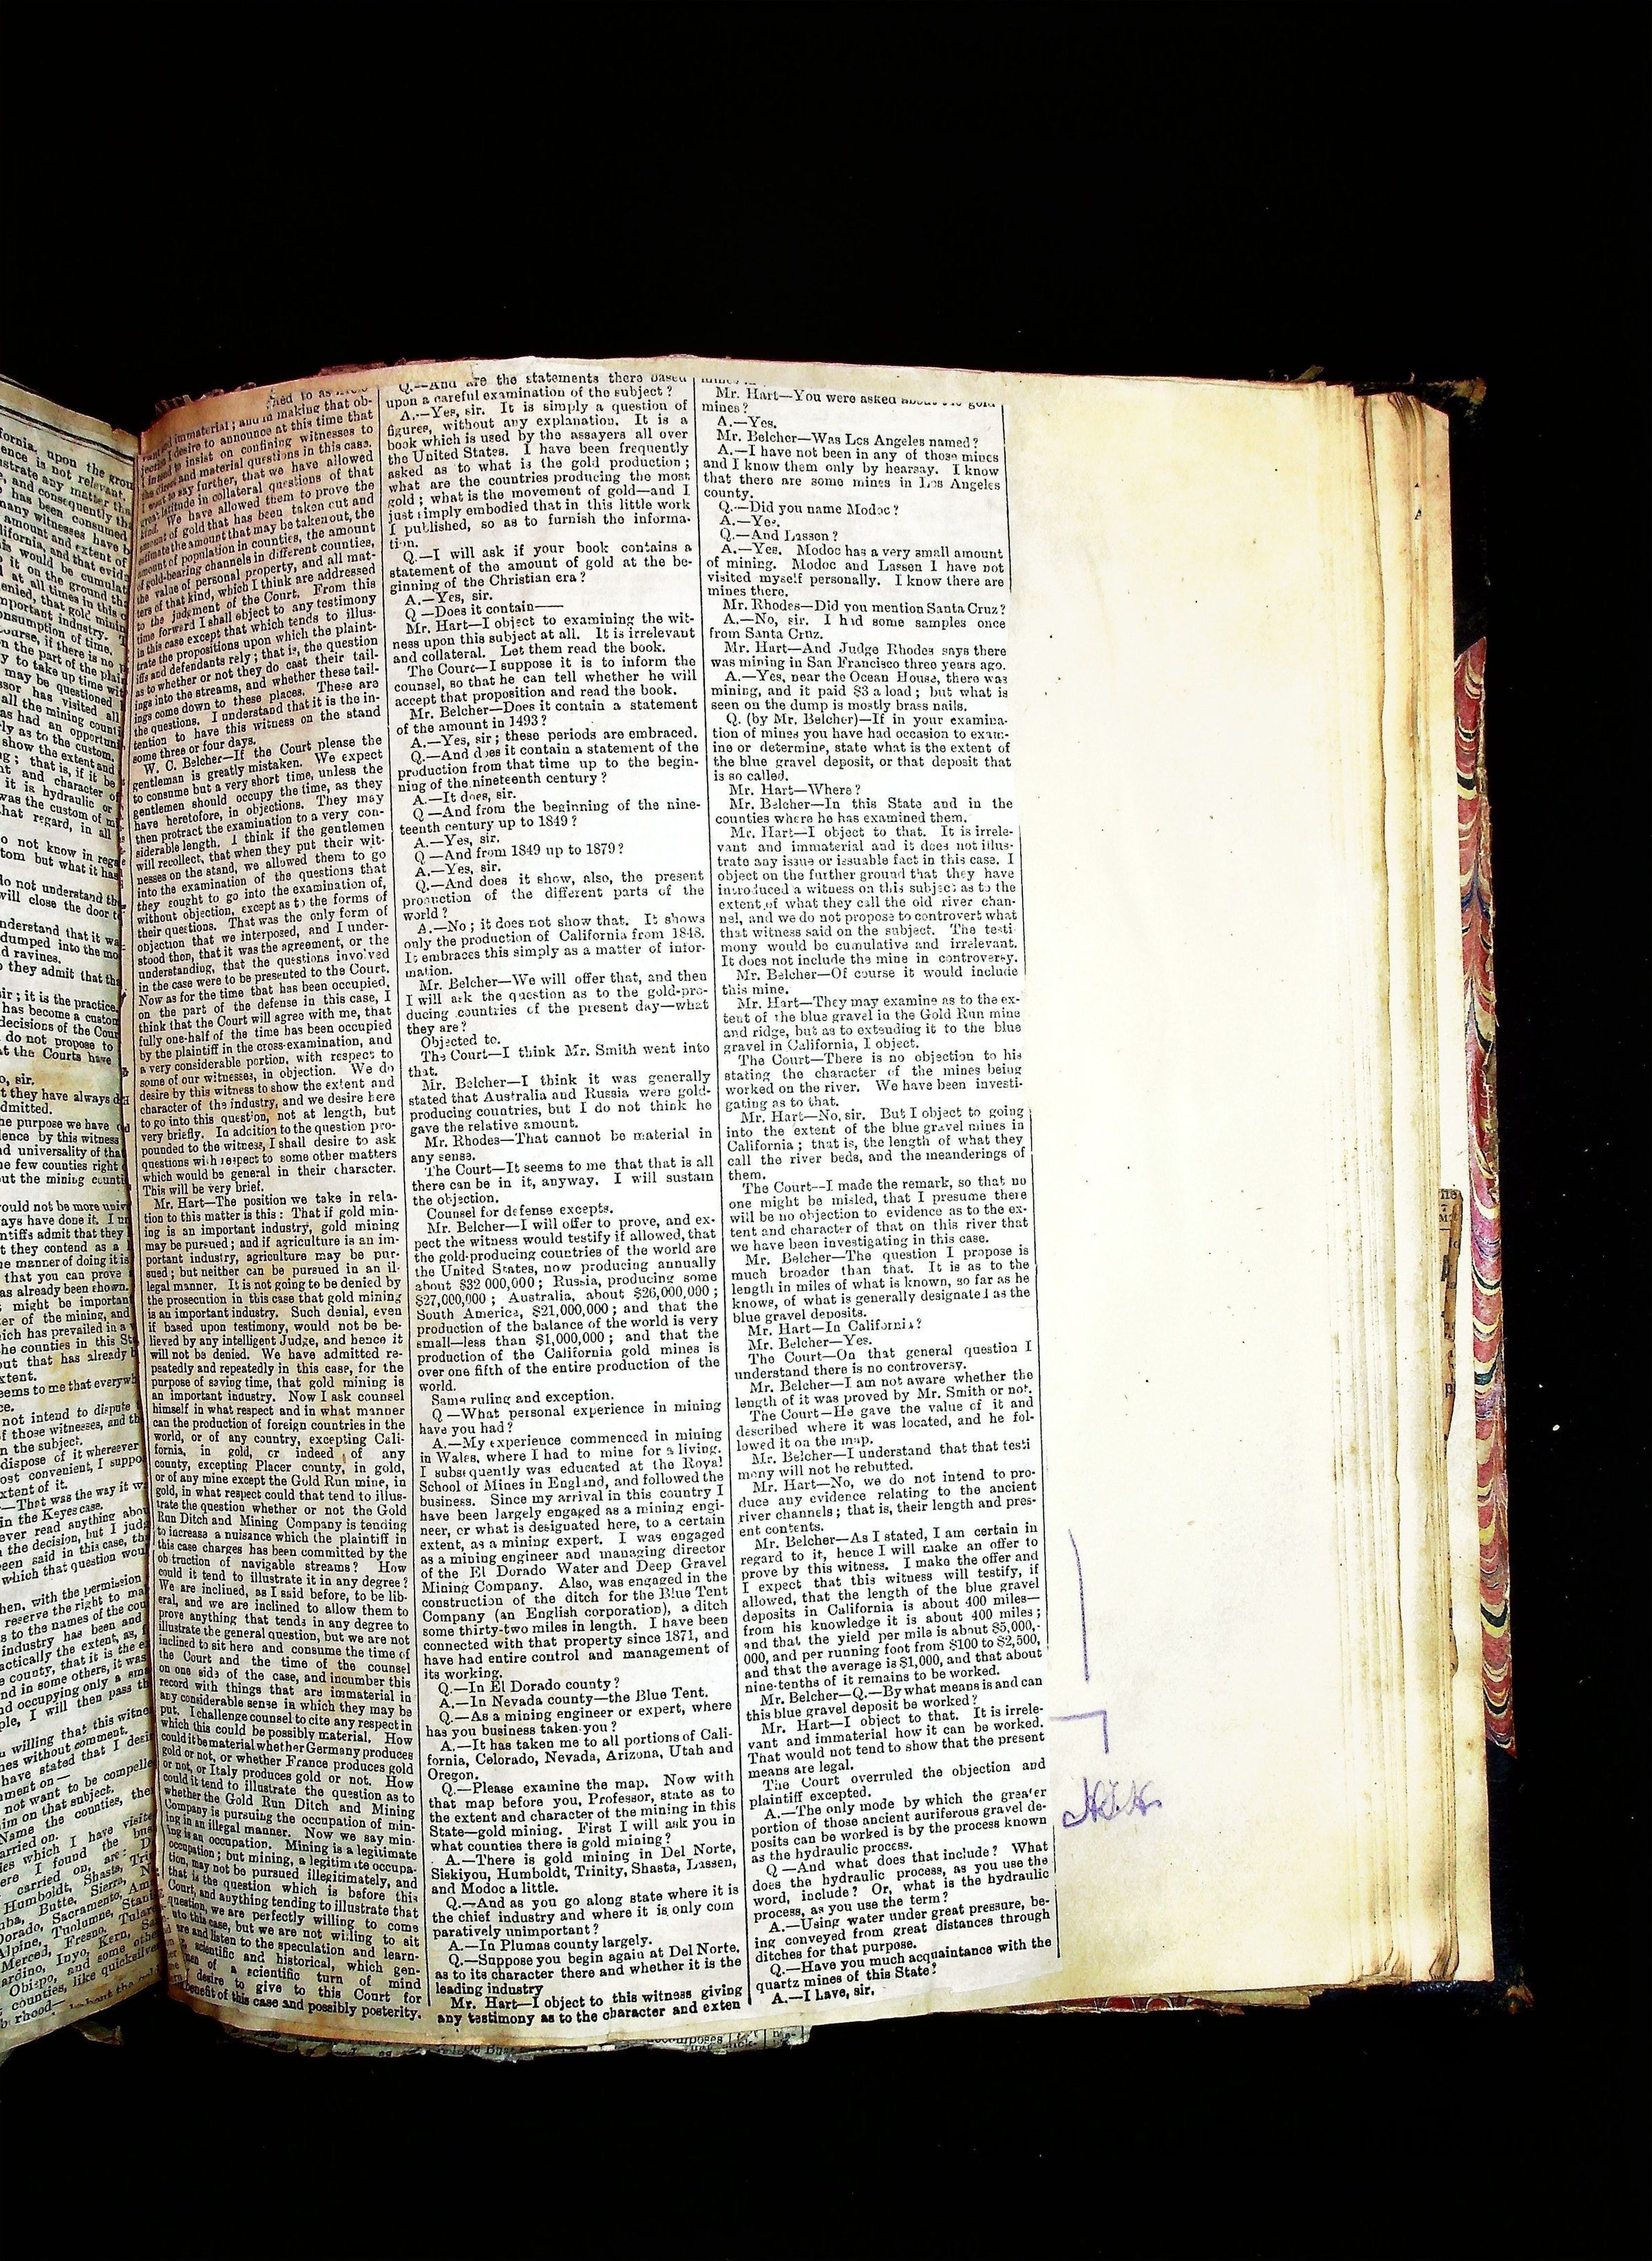 fornia, upon the
ence is not relevant.
strate any matter
and consequently
has been consumed
many witnesses named
amount and extent of
lifornia, and that
would be
it on the ground
at all times in this
enied, that gold
mportant industry.
onsumption of time.
course, if there is no
n the part of the
y to take up time
may be questioned
ssor has visited all
all the mining
as had an
ly as to the custom,
show the extent and
that is, if it be
nt and character of
it is hydraulic or
was the custom of
hat regard, in all
o not know in
tom but what it has
do not understand
will close the door
nderstand that it
dumped into the
d ravines.
they admit that
sir; it is the practice
has become a custom
decisions of the
do not propose to
at the Courts have
o, sir.
t they have always
dmitted.
he purpose we have
ence by this witness
d universality of that
he few counties right
out the mining
ould not be more
ays have done it.
ntiffs admit that they
t they contend as a
e manner of doing it is
that you can prove
as already been shown.
might be important
er of the mining, and
ich has prevailed in
he counties in this
out that has already
xtent.
eems to me that
ce.
not intend to dispute
f those witnesses, and
n the subject.
dispose of it wherever
ost convenient, I
xtent of it.
—That was the way it
in the Keyes case.
ever read anything
the decision, but I
een said in this case,
which that question
hen, with the permission
reserve the right to
s to the names of the
industry has been and
actically the extent, as,
county, that it is the
nd in some others, it was
d occupying only a
ple, I will then pass
willing that this
nes without comment.
have stated that I
ment on—
not want to be
im on that subject.
Name the counties,
arried on.
ies which I have
ere I found the
carried on, are:
Humboldt, Shasta,
Butte, Sierra,
Dorado, Sacramento,
Alpine, Tuolumne,
Merced, Fresno,
ardino, Inyo, Kern,
Obispo, and some
counties, like
rhood—
to as
immaterial; and in making that ob-
I desire to announce at this time that
to insist on confining witnesses to
and material questions in this case.
to say further, that we have allowed
great latitude in collateral questions of that
kind. We have allowed them to prove the
amount of gold that has been taken out and
estimate the amount that may be taken out, the
amount of population in counties, the amount
of gold-bearing channels in different counties,
the value of personal property, and all mat-
ters of that kind, which I think are addressed
to the judgment of the Court. From this
time forward I shall object to any testimony
in this case except that which tends to illus-
trate the propositions upon which the plaint-
iffs and defendants rely; that is, the question
as to whether or not they do cast their tail-
ings into the streams, and whether these tail-
ings come down to these places. These are
the questions. I understand that it is the in-
tention to have this witness on the stand
some three or four days.
W. C. Belcher—If the Court please the
gentleman is greatly mistaken. We expect
to consume but a very short time, unless the
gentlemen should occupy the time, as they
have heretofore, in objections. They may
then protract the examination to a very con-
siderable length. I think if the gentlemen
will recollect, that when they put their wit-
nesses on the stand, we allowed them to go
into the examination of the questions that
they sought to go into the examination of,
without objection, except as to the forms of
their questions. That was the only form of
objection that we interposed, and I under-
stood then, that it was the agreement, or the
understanding, that the questions involved
in the case were to be presented to the Court.
Now as for the time that has been occupied,
on the part of the defense in this case, I
think that the Court will agree with me, that
fully one-half of the time has been occupied
by the plaintiff in the cross-examination, and
a very considerable portion, with respect to
some of our witnesses, in objection. We do
desire by this witness to show the extent and
character of the industry, and we desire here
to go into this question, not at length, but
very briefly. In addition to the question pro-
pounded to the witness, I shall desire to ask
questions with respect to some other matters
which would be general in their character.
This will be very brief.
Mr. Hart—The position we take in rela-
tion to this matter is this: That if gold min-
ing is an important industry, gold mining
may be pursued; and if agriculture is an im-
portant industry, agriculture may be pur-
sued; but neither can be pursued in an il-
legal manner. It is not going to be denied by
the prosecution in this case that gold mining
is an important industry. Such denial, even
if based upon testimony, would not be be-
lieved by any intelligent Judge, and hence it
will not be denied. We have admitted re-
peatedly and repeatedly in this case, for the
purpose of saving time, that gold mining is
an important industry. Now I ask counsel
himself in what respect and in what manner
can the production of foreign countries in the
world, or of any country, excepting Cali-
fornia, in gold, or indeed of any
county, excepting Placer county, in gold,
or of any mine except the Gold Run mine, in
gold, in what respect could that tend to illus-
trate the question whether or not the Gold
Run Ditch and Mining Company is tending
to increase a nuisance which the plaintiff in
this case charges has been committed by the
obstruction of navigable streams? How
could it tend to illustrate it in any degree?
We are inclined, as I said before, to be lib-
eral, and we are inclined to allow them to
prove anything that tends in any degree to
illustrate the general question, but we are not
inclined to sit here and consume the time of
the Court and the time of the counsel
on one side of the case, and incumber this
record with things that are immaterial in
any considerable sense in which they may be
put. I challenge counsel to cite any respect in
which this could be possibly material. How
could it be material whether Germany produces
gold or not, or whether France produces gold
or not, or Italy produces gold or not. How
could it tend to illustrate the question as to
whether the Gold Run Ditch and Mining
Company is pursuing the occupation of min-
ing in an illegal manner. Now we say min-
ing is an occupation. Mining is a legitimate
occupation; but mining, a legitimate occupa-
tion, may not be pursued illegitimately, and
that is the question which is before this
Court, and anything tending to illustrate that
question, we are perfectly willing to come
into this case, but we are not willing to sit
and listen to the speculation and learn-
scientific and historical, which gen-
men of a scientific turn of mind
desire to give to this Court for
benefit of this case and possibly posterity.
Q.—And are the statements there based
upon a careful examination of the subject?
A.—Yes, sir. It is simply a question of
figures, without any explanation. It is a
book which is used by the assayers all over
the United States. I have been frequently
asked as to what is the gold production;
what are the countries producing the most
gold; what is the movement of gold—and I
just simply embodied that in this little work
I published, so as to furnish the informa-
tion.
Q.—I will ask if your book contains a
statement of the amount of gold at the be-
ginning of the Christian era?
A.—Yes, sir.
Q—Does it contain——
Mr. Hart—I object to examining the wit-
ness upon this subject at all. It is irrelevant
and collateral. Let them read the book.
The Court—I suppose it is to inform the
counsel, so that he can tell whether he will
accept that proposition and read the book.
Mr. Belcher—Does it contain a statement
of the amount in 1493?
A.—Yes, sir; these periods are embraced.
Q.—And does it contain a statement of the
production from that time up to the begin-
ning of the nineteenth century?
A.—It does, sir.
Q—And from the beginning of the nine-
teenth century up to 1849?
A.—Yes, sir.
Q—And from 1849 up to 1879?
A.—Yes, sir.
Q.—And does it show, also, the present
production of the different parts of the
world?
A.—No; it does not show that. It shows
only the production of California from 1848.
It embraces this simply as a matter of infor-
mation.
Mr. Belcher—We will offer that, and then
I will ask the question as to the gold-pro-
ducing countries of the present day—what
they are?
Objected to.
The Court—I think Mr. Smith went into
that.
Mr. Belcher—I think it was generally
stated that Australia and Russia were gold-
producing countries, but I do not think he
gave the relative amount.
Mr. Rhodes—That cannot be material in
any sense.
The Court—It seems to me that that is all
there can be in it, anyway. I will sustain
the objection.
Counsel for defense excepts.
Mr. Belcher—I will offer to prove, and ex-
pect the witness would testify if allowed, that
the gold-producing countries of the world are
the United States, now producing annually
about $32 000,000; Russia, producing some
$27,000,000; Australia, about $26,000,000;
South America, $21,000,000; and that the
production of the balance of the world is very
small—less than $1,000,000; and that the
production of the California gold mines is
over one fifth of the entire production of the
world.
Same ruling and exception.
Q—What personal experience in mining
have you had?
A.—My experience commenced in mining
in Wales, where I had to mine for a living.
I subsequently was educated at the Royal
School of Mines in England, and followed the
business. Since my arrival in this country I
have been largely engaged as a mining engi-
neer, or what is designated here, to a certain
extent, as a mining expert. I was engaged
as a mining engineer and managing director
of the El Dorado Water and Deep Gravel
Mining Company. Also, was engaged in the
construction of the ditch for the Blue Tent
Company (an English corporation), a ditch
some thirty-two miles in length. I have been
connected with that property since 1871, and
have had entire control and management of
its working.
Q.—In El Dorado county?
A.—In Nevada county—the Blue Tent.
Q.—As a mining engineer or expert, where
has you business taken you?
A.—It has taken me to all portions of Cali-
fornia, Colorado, Nevada, Arizona, Utah and
Oregon.
Q.—Please examine the map. Now with
that map before you, Professor, state as to
the extent and character of the mining in this
State—gold mining. First I will ask you in
what counties there is gold mining?
A.—There is gold mining in Del Norte,
Siskiyou, Humboldt, Trinity, Shasta, Lassen,
and Modoc a little.
Q.—And as you go along state where it is
the chief industry and where it is only com
paratively unimportant?
A.—In Plumas county largely.
Q.—Suppose you begin again at Del Norte,
as to its character there and whether it is the
leading industry
Mr. Hart—I object to this witness giving
any testimony as to the character and exten
Mr. Hart—You were asked about the gold
mines?
A.—Yes.
Mr. Belcher—Was Los Angeles named?
A.—I have not been in any of those mines
and I know them only by hearsay. I know
that there are some mines in Los Angeles
county.
Q.—Did you name Modoc?
A.—Yes.
Q.—And Lassen?
A.—Yes. Modoc has a very small amount
of mining. Modoc and Lassen I have not
visited myself personally. I know there are
mines there.
Mr. Rhodes—Did you mention Santa Cruz?
A.—No, sir. I had some samples once
from Santa Cruz.
Mr. Hart—And Judge Rhodes says there
was mining in San Francisco three years ago.
A.—Yes, near the Ocean House, there was
mining, and it paid $3 a load; but what is
seen on the dump is mostly brass nails.
Q. (by Mr. Belcher)—If in your examina-
tion of mines you have had occasion to exam-
ine or determine, state what is the extent of
the blue gravel deposit, or that deposit that
is so called.
Mr. Hart—Where?
Mr. Belcher—In this State and in the
counties where he has examined them.
Mr. Hart—I object to that. It is irrele-
vant and immaterial and it does not illus-
trate any issue or issuable fact in this case. I
object on the further ground that they have
introduced a witness on this subject as to the
extent of what they call the old river chan-
nel, and we do not propose to controvert what
that witness said on the subject. The testi
mony would be cumulative and irrelevant.
It does not include the mine in controversy.
Mr. Belcher—Of course it would include
this mine.
Mr. Hart—They may examine as to the ex-
tent of the blue gravel in the Gold Run mine
and ridge, but as to extending it to the blue
gravel in California, I object.
The Court—There is no objection to his
stating the character of the mines being
worked on the river. We have been investi-
gating as to that.
Mr. Hart—No, sir. But I object to going
into the extent of the blue gravel mines in
California; that is, the length of what they
call the river beds, and the meanderings of
them.
The Court—I made the remark, so that no
one might be misled, that I presume there
will be no objection to evidence as to the ex-
tent and character of that on this river that
we have been investigating in this case.
Mr. Belcher—The question I propose is
much broader than that. It is as to the
length in miles of what is known, so far as he
knows, of what is generally designated as the
blue gravel deposits.
Mr. Hart—In California?
Mr. Belcher—Yes.
The Court—On that general question I
understand there is no controversy.
Mr. Belcher—I am not aware whether the
length of it was proved by Mr. Smith or not.
The Court—He gave the value of it and
described where it was located, and he fol-
lowed it on the map.
Mr. Belcher—I understand that that testi
mony will not be rebutted.
Mr. Hart—No, we do not intend to pro-
duce any evidence relating to the ancient
river channels; that is, their length and pres-
ent contents.
Mr. Belcher—As I stated, I am certain in
regard to it, hence I will make an offer to
prove by this witness. I make the offer and
I expect that this witness will testify, if
allowed, that the length of the blue gravel
deposits in California is about 400 miles—
from his knowledge it is about 400 miles;
and that the yield per mile is about $5,000,-
000, and per running foot from $100 to $2,500,
and that the average is $1,000, and that about
nine-tenths of it remains to be worked.
Mr. Belcher—Q.—By what means is and can
this blue gravel deposit be worked?
Mr. Hart—I object to that. It is irrele-
vant and immaterial how it can be worked.
That would not tend to show that the present
means are legal.
The Court overruled the objection and
plaintiff excepted.
A.—The only mode by which the greater
portion of those ancient auriferous gravel de-
posits can be worked is by the process known
as the hydraulic process.
Q—And what does that include? What
does the hydraulic process, as you use the
word, include? Or, what is the hydraulic
process, as you use the term?
A.—Using water under great pressure, be-
ing conveyed from great distances through
ditches for that purpose.
Q.—Have you much acquaintance with the
quartz mines of this State?
A.—I have, sir.